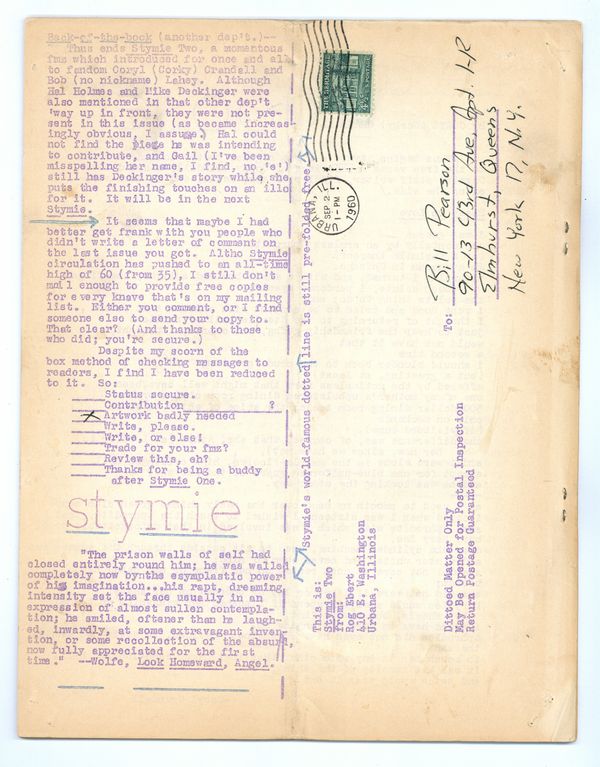 Back-of-the-book (another dep't.)--
Thus ends Stymie Two, a momentous
fmz which introduced for once and all
to fandom Coryl (Corky) Crandall and
Bob (no nickname) Lahey. Although
Hal Holmes and Mike Deckinger were
also mentioned in that other dep't
'way up in front, they were not pre-
sent in this issue (as became increas-
ingly obvious, I assume.) Hal could
not find the piece he was intending
to contribute, and Gail (I've been
misspelling her name, I find, no 'e')
still has Deckinger's story while she
puts the finishing touches on an illo
for it. It will be in the next
Stymie.
It seems that maybe I had
better get frank with you people who
didn't write a letter of comment on
the last issue you get. Altho Stymie
circulation has pushed to an all-time
high of 60 (from 35), I still don't
mail enough to provide free copies
for every knave that's on my mailing
list. Either you comment, or I find
someone else to send your copy to.
That clear? (And thanks to those
who did; you're secure.)
Despite my scorn of the
box method of checking messages to
readers, I find I have been reduced
to it. So:
Status secure.
Contribution ?
x Artwork badly needed
Write, please.
Write, or else!
Trade for your fmz?
Review this, eh?
Thanks for being a buddy
after Stymie One.
stymie
"The prison walls of self had
closed entirely round him; he was walled
completely now bynths esymplastic power
of his imagination...his rapt, dreaming
intensity set the face usually in an
expression of almost sullen contempla-
tion; he smiled, oftener than he laugh-
ed, inwardly, at some extravagant inven-
tion, or some recollection of the absurd,
now fully appreciated for the first
time." --Wolfe, Look Homeward, Angel.
Stymie's world-famous dotted line is still pre-folded free
This is:
Stymie Two
From:
Rog Ebert
410 E. Washington
Urbana, Illinois
Dittoed Matter Only
May Be Opened for Postal Inspection
Return Postage Guaranteed
To:
Bill Pearson
90-13 43rd Ave, Apt. 1-R
Elmhurst, Queens
New York 17, N.Y.
URBANA, ILL.
SEP 2
1-PM
1960
POSTAGE